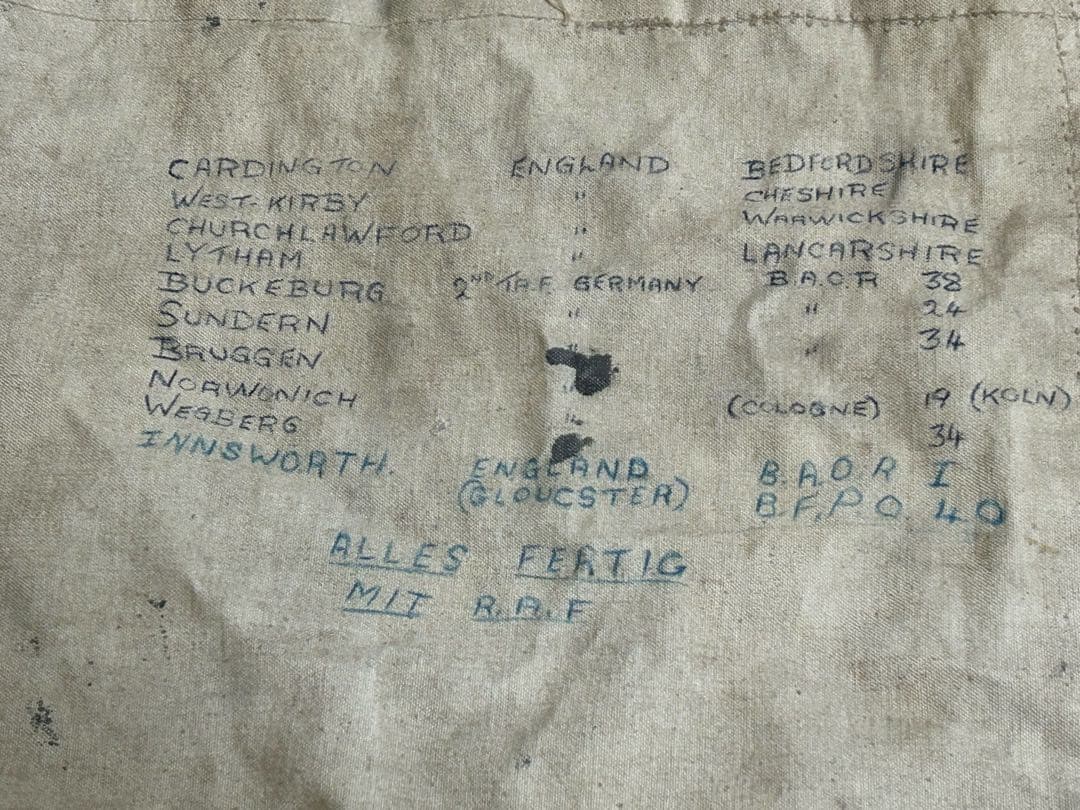 CARDINGTON ENGLAND BEDFORDSHIRE
WEST-KIRBY " CHESHIRE
CHURCHLAWFORD " WARWICKSHIRE
LYTHAM " LANCARSHIRE
BUCKEBURG 2ND T.A.F. GERMANY B.A.O.R 38
SUNDERN " " 24
BRUGGEN " 34
NORWONICH " (COLOGNE) 19 (KOLN)
WEGBERG " 34
INNSWORTH. ENGLAND B.A.O R I
(GLOUCSTER) B.F.P O. 40
ALLES FERTIG
MIT R.A.F